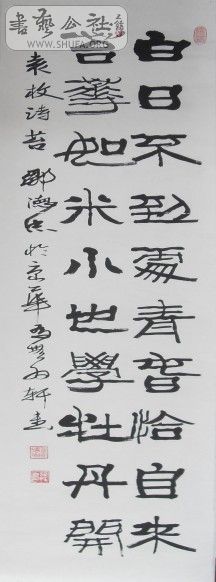 書藝公社
WWW.SHUFA.ORG
白日不到處青春恰自來
苔華如米小也學牡丹開
袁枚诗苔 於京華